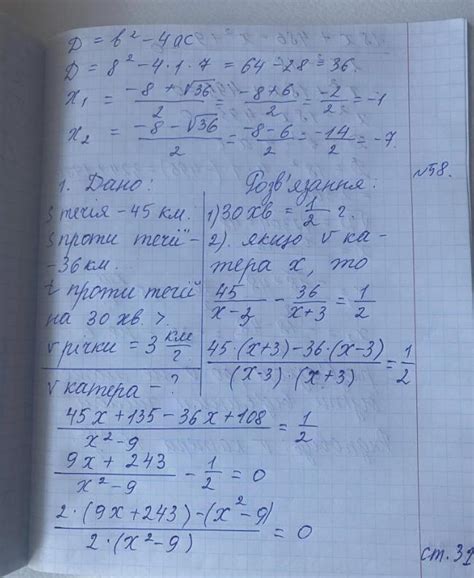 D = b² - 4ac
D = 8² - 4·1·7 = 64 - 28 = 36
x₁ = (-8 + √36)/2 = (-8+6)/2 = -2/2 = -1
x₂ = (-8 - √36)/2 = (-8-6)/2 = -14/2 = -7.
№58.
1. Дано:
S течія - 45 км.
S проти течії -
- 36 км.
t проти течії
на 30 хв. >.
v річки = 3 км/г
v катера - ?
Розв'язання:
1) 30 хв = 1/2 г.
2). якщо v ка-
тера x, то
45/(x-3) - 36/(x+3) = 1/2
(45·(x+3) - 36·(x-3))/((x-3)·(x+3)) = 1/2
(45x + 135 - 36x + 108)/(x² - 9) = 1/2
(9x + 243)/(x² - 9) - 1/2 = 0
(2·(9x+243) - (x² - 9))/(2·(x² - 9)) = 0
ст. 31